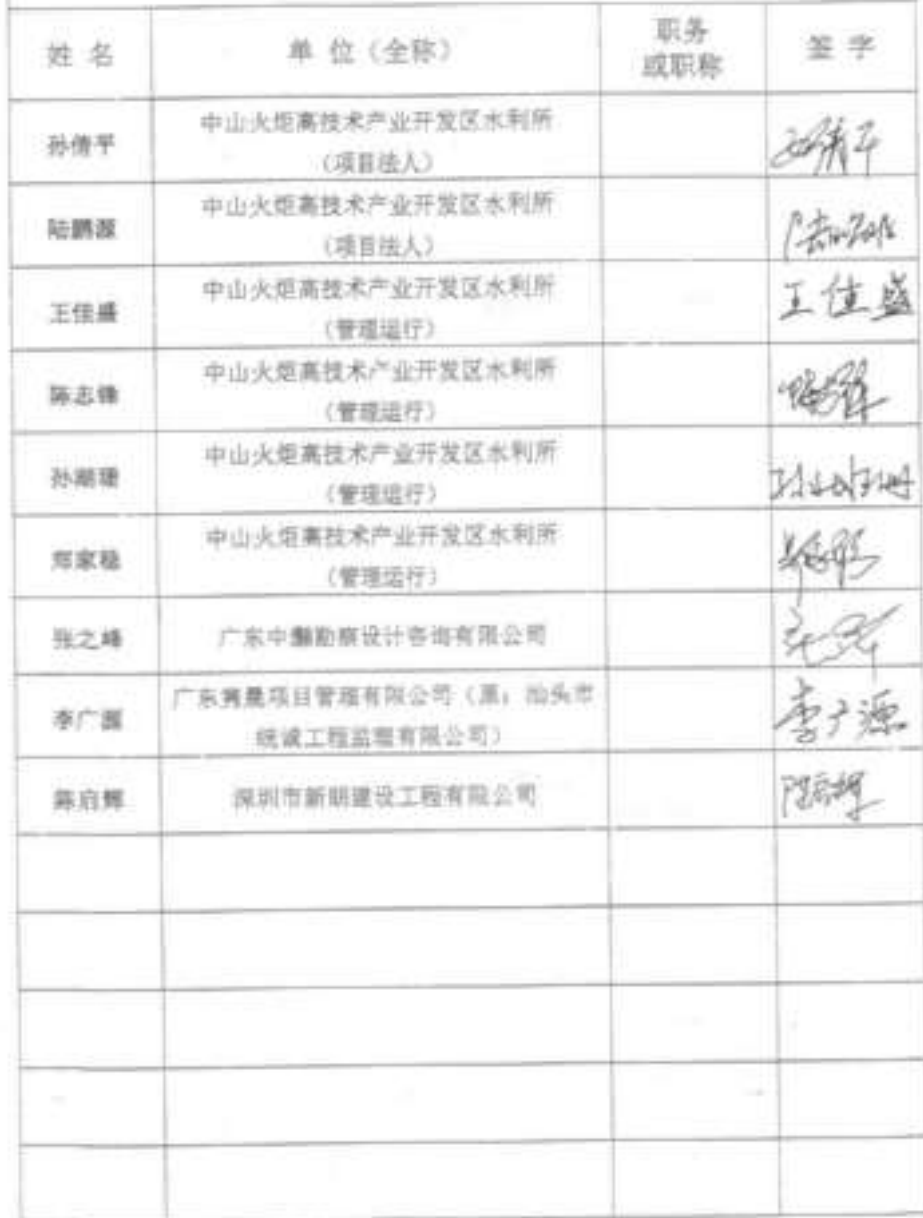 姓 名 单 位（全称） 职务 签 字
或职称
孙倩平 中山火炬高技术产业开发区水利所
（项目法人）
陆鹏源 中山火炬高技术产业开发区水利所
（项目法人）
王佳盛 中山火炬高技术产业开发区水利所 王佳盛
（管理运行）
陈志锋 中山火炬高技术产业开发区水利所
（管理运行）
孙潮珊 中山火炬高技术产业开发区水利所 孙潮珊
（管理运行）
郑家稳 中山火炬高技术产业开发区水利所
（管理运行）
张之峰 广东中灏勘察设计咨询有限公司
李广源 广东 项目管理有限公司（原：汕头市 李广源
统诚工程监理有限公司）
陈启辉 深圳市新朗建设工程有限公司 陈启辉